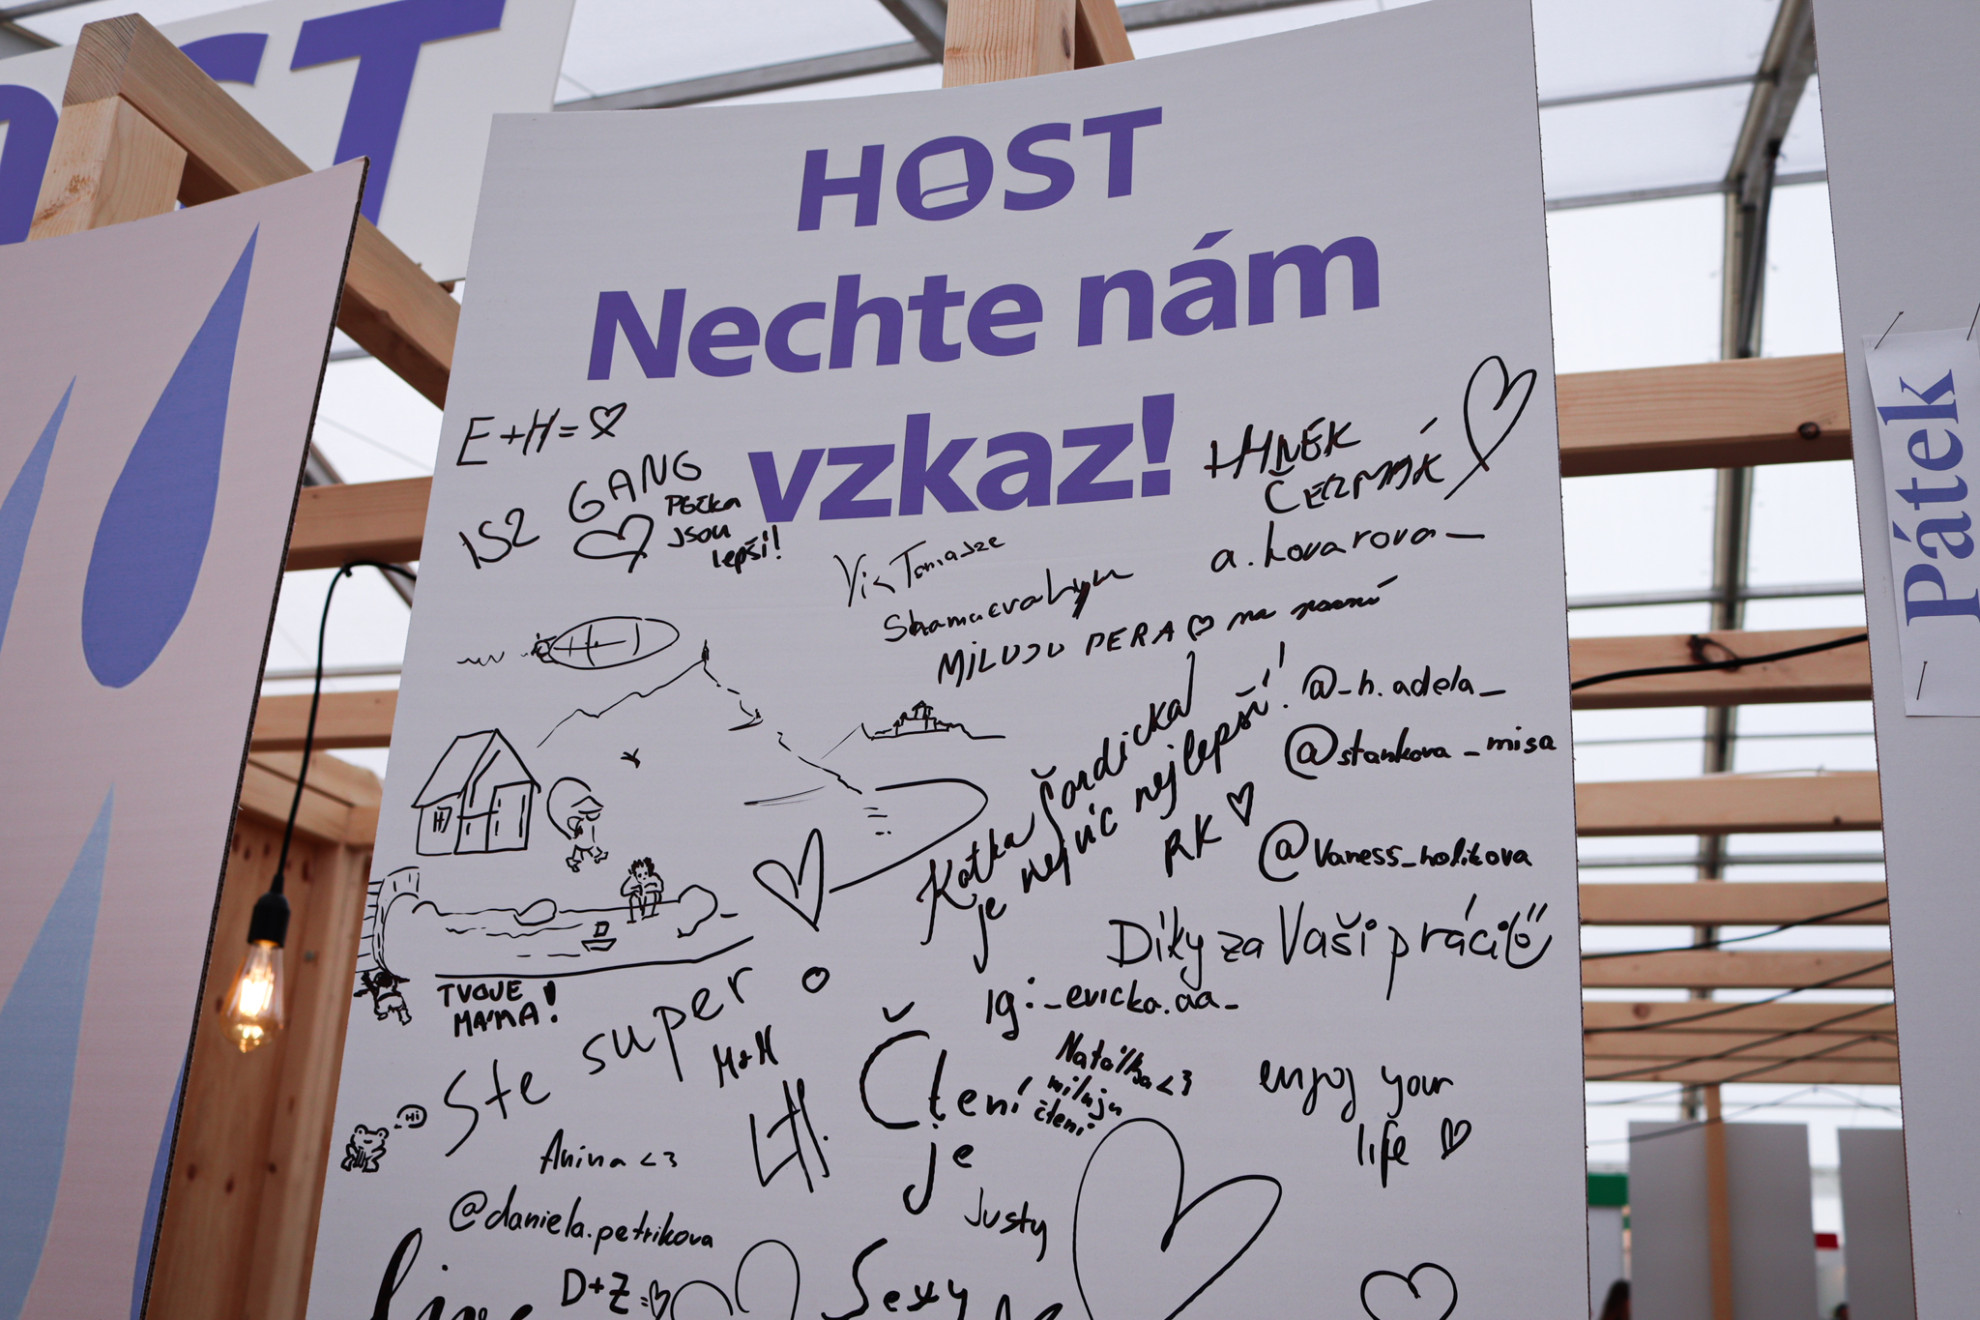 HOST
HOST
Nechte nám
vzkaz!
Pátek
E+H=♡
1S2 GANG
PÉČKA
JSOU
lepší!
HYNEK
ČERMÁK
a.kovarova_
MILUJU PERA ♡ na psaní
@_h.adela_
@stankova_misa
Katka Šardická
je nejvíc nejlepší!
RK ♡
@vaness_holikova
Díky za Vaši práci
ig:_evicka.aa_
TVOJE
MÁMA!
Ste super
M+M
Čtení
je
Sexy
Natálka <3
miluju
čtení
enjoy your
life ♡
Hi
Anina <3
Justy
@daniela.petrikova
D+Z=♡